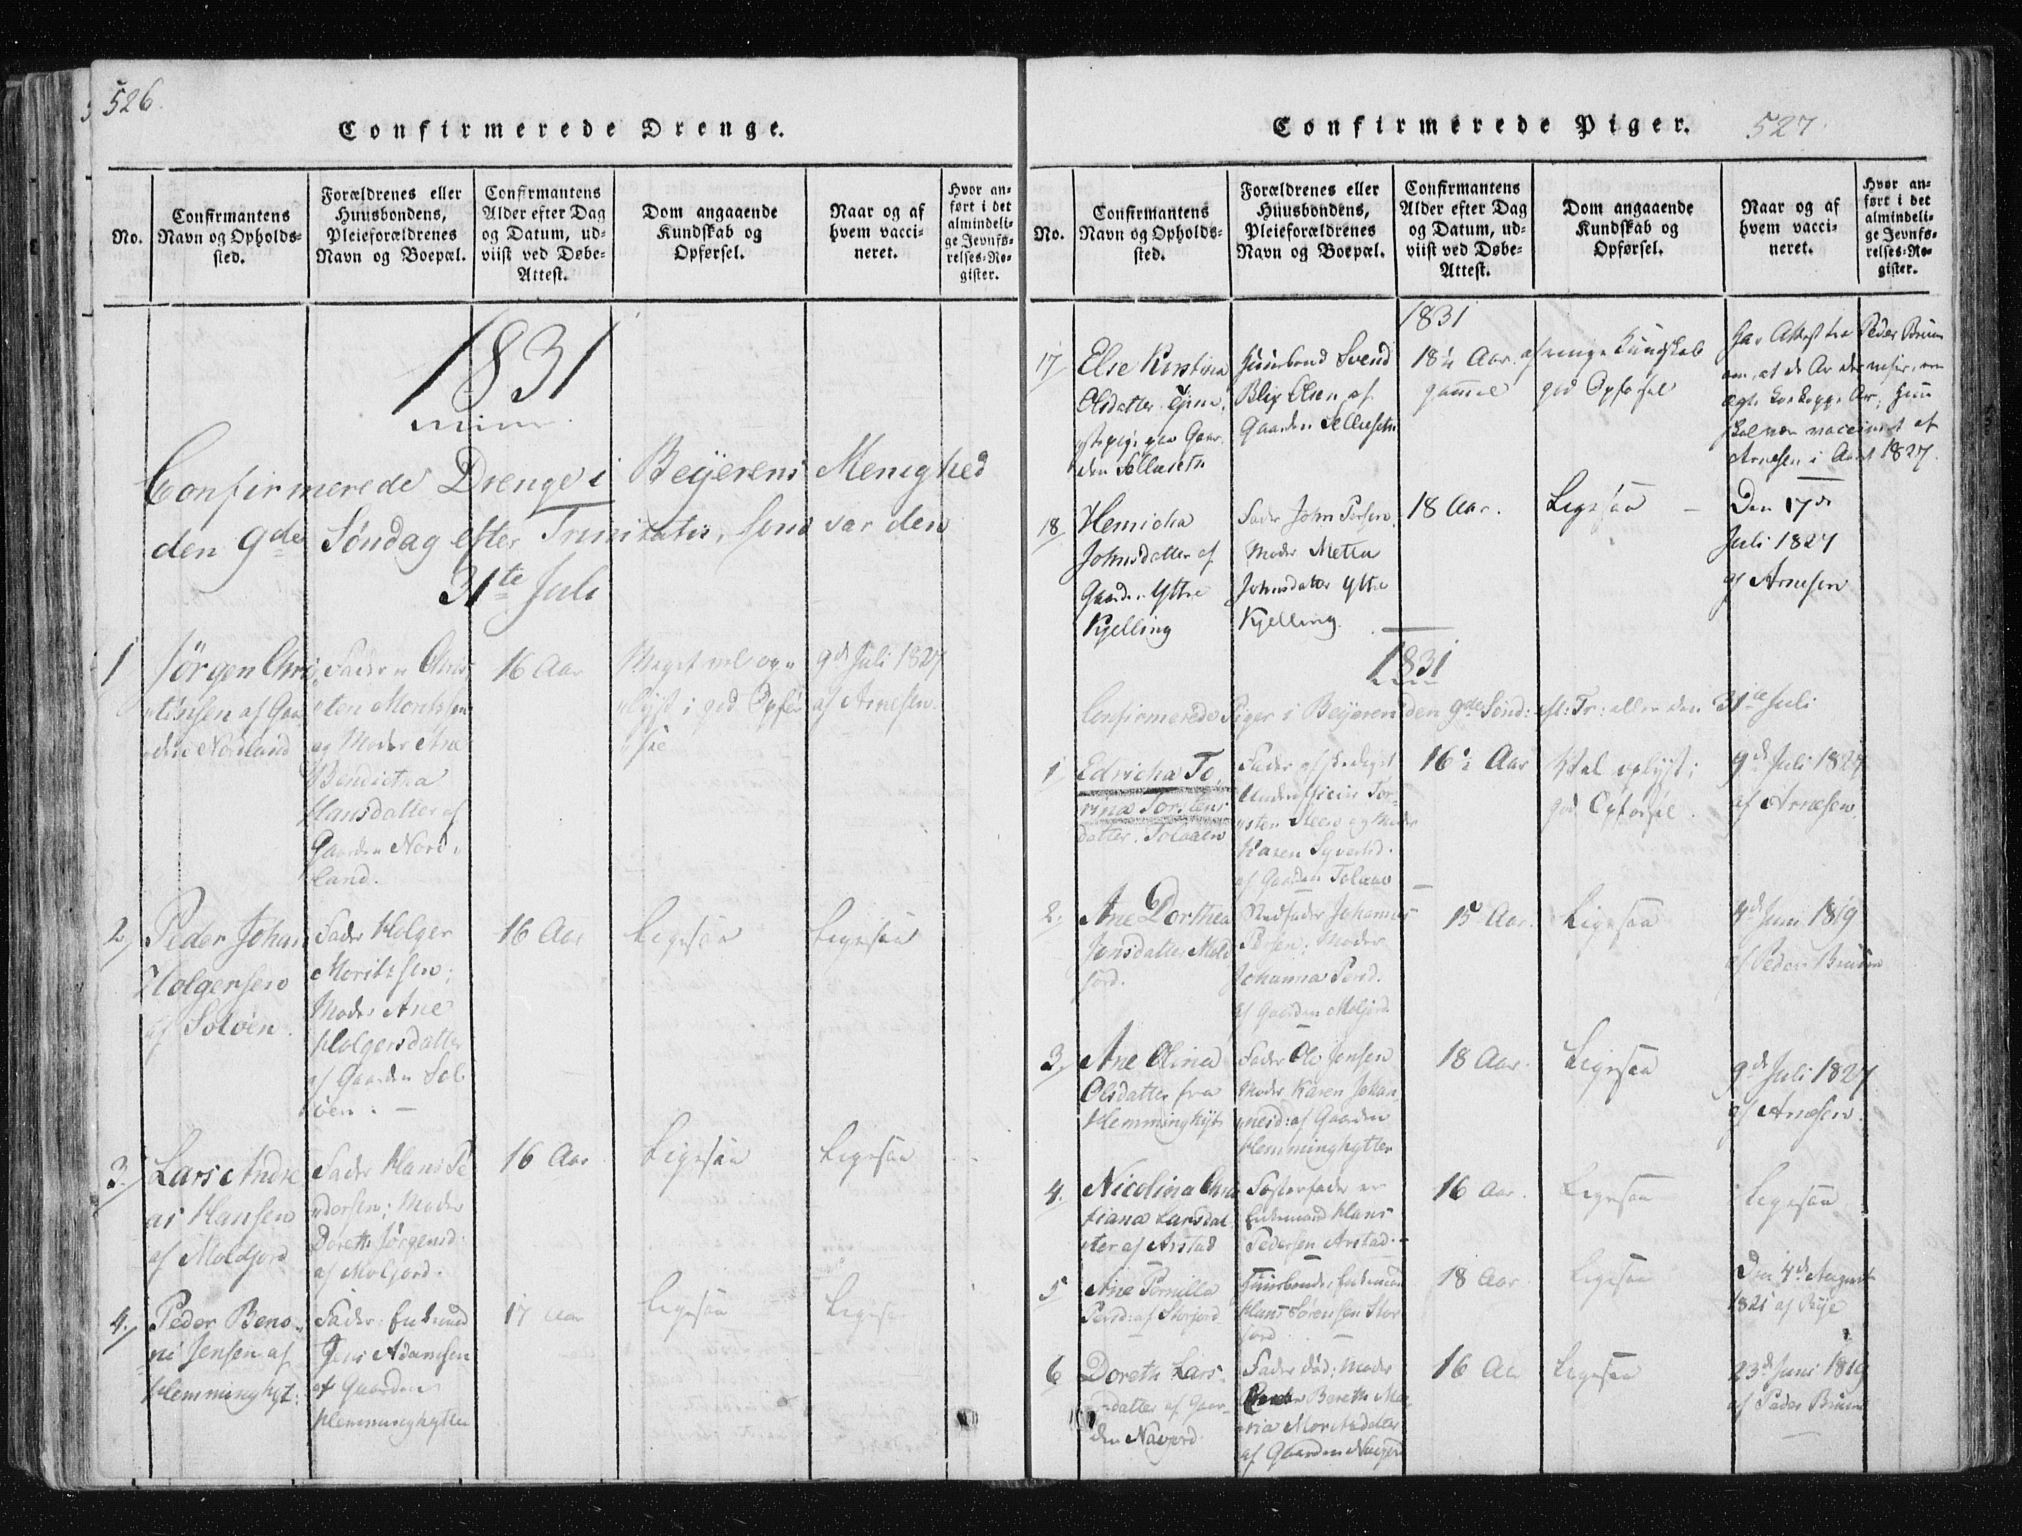 526.
Confirmerede Drenge.
No.
Confirmantens
Navn og Opholds-
sted.
Forældrenes eller
Huusbondens,
Pleieforældrenes
Navn og Boepæl.
Confirmantens
Alder efter Dag
og Datum, ud-
viist ved Døbe-
Attest.
Dom angaaende
Kundskab og
Opførsel.
Naar og af
hvem vacci-
neret.
Hvor an-
ført i det
almindeli-
ge Jevnfø-
relses-Re-
gister.
1831
Confirmerede Drenge i Beijerens Menighed
den 9de Søndag efter Trinitatis, som var den
31te Juli
1
Jørgen Chri-
stensen af Gaa-
den Nordland
Fader Chri-
sten Moritzsen
og Moder Ane
Bendicta
Hansdatter af
Gaarden Nord-
land.
16 Aar
Meget vel op-
lyst i god Opfør-
9de Juli 1827
af Arnesen.
2
Peder Johan
Holgersen
af Soløen.
Fader Holger
Moritzsen;
Moder Ane
Holgersdatter
af Gaarden Sol-
øen.
16 Aar
Ligesaa
Ligesaa
3.
Lars Andre-
as Hansen
af Moldjord
Fader Hans Pe-
dersen; Moder
Doreth Jørgensd:
af Moljord.
16 Aar
Ligesaa
Ligesaa
4.
Peder Beno-
ni Jensen af
Hemminghyt:
Fader: Enkemand
Jens Adamsen
af Gaarden
Hemminghytter
17 Aar
Ligesaa
Ligesaa
Confirmerede Piger.
527.
No.
Confirmantens
Navn og Opholds-
sted.
Forældrenes eller
Huusbondens,
Pleieforældrenes
Navn og Boepæl.
Confirmantens
Alder efter Dag
og Datum, ud-
viist ved Døbe-
Attest.
Dom angaaende
Kundskab og
Opførsel.
Naar og af
hvem vacci-
neret.
Hvor an-
ført i det
almindeli-
ge Jevnfø-
relses-Re-
gister.
1831
17
Else Kirstina
Olsdatter Tjene-
stepige paa Gaar-
den
Huusbond Svend
Blix Olsen af
Gaarden
18½ Aar
gammel
af ringe Kundskab
god Opførsel
har Attest fra Peder Bruun
om, at
ægte Koekopper
skal være vaccineret af
Arnesen i Aaret 1827.
18
Henricha
Johnsdatter af
Gaarden Yttre
Kjelling
Fader John Persen.
Moder Metta
Johnsdatter Yttre
Kjelling.
18 Aar.
Ligesaa
Den 17de
Juli 1827
af Arnesen
1831
Confirmerede Piger i Beijeren den 9de Sønd: eft: Tr: eller den 31te Juli
1
Edricha To-
rina Torstens-
datter. Tolaaen
Fader afskediget
Underofficir Tor-
sten Steen og Moder
Karen Syvertsd.
af Gaarden Tolaae
16½ Aar
Vel oplyst;
god Opførsel.
9de Juli 1827
af Arnesen.
2.
Ane Dorthea
Jonsdatter Mold-
jord.
Stedfader Johannes
Persen; Moder
Johanna Persd.
af Gaarden Moljord
15 Aar.
Ligesaa
4de Juni 1819
af Peder Bruun
3.
Ane Olina
Olsdatter fra
Hemminghyt:
Fader Ole Jensen
Moder Karen Johan-
nesd: af Gaarden
Hemminghytter
18 Aar.
Ligesaa
9de Juli 1827
af Arnesen.
4.
Nicolina Chri-
stiana Larsdat-
ter af Arstad
Fosterfader er
Enkemand Hans
Pedersen Arstad.
16 Aar.
Ligesaa
Ligesaa
5
Ane Pernilla
Persd: af Storjord
Huusbonde, Enkemand
Hans Sørensen Stor-
jord
18 Aar.
Ligesaa
Den 4de August
1821 af
6
Doreth Lars-
datter af Gaar-
den Navjord
Fader død; Moder
Bereth Ma-
ria Moritzdatter
af Gaarden Navjord
16 Aar
Ligesaa
23de Juni 1819
af Peder Bruun